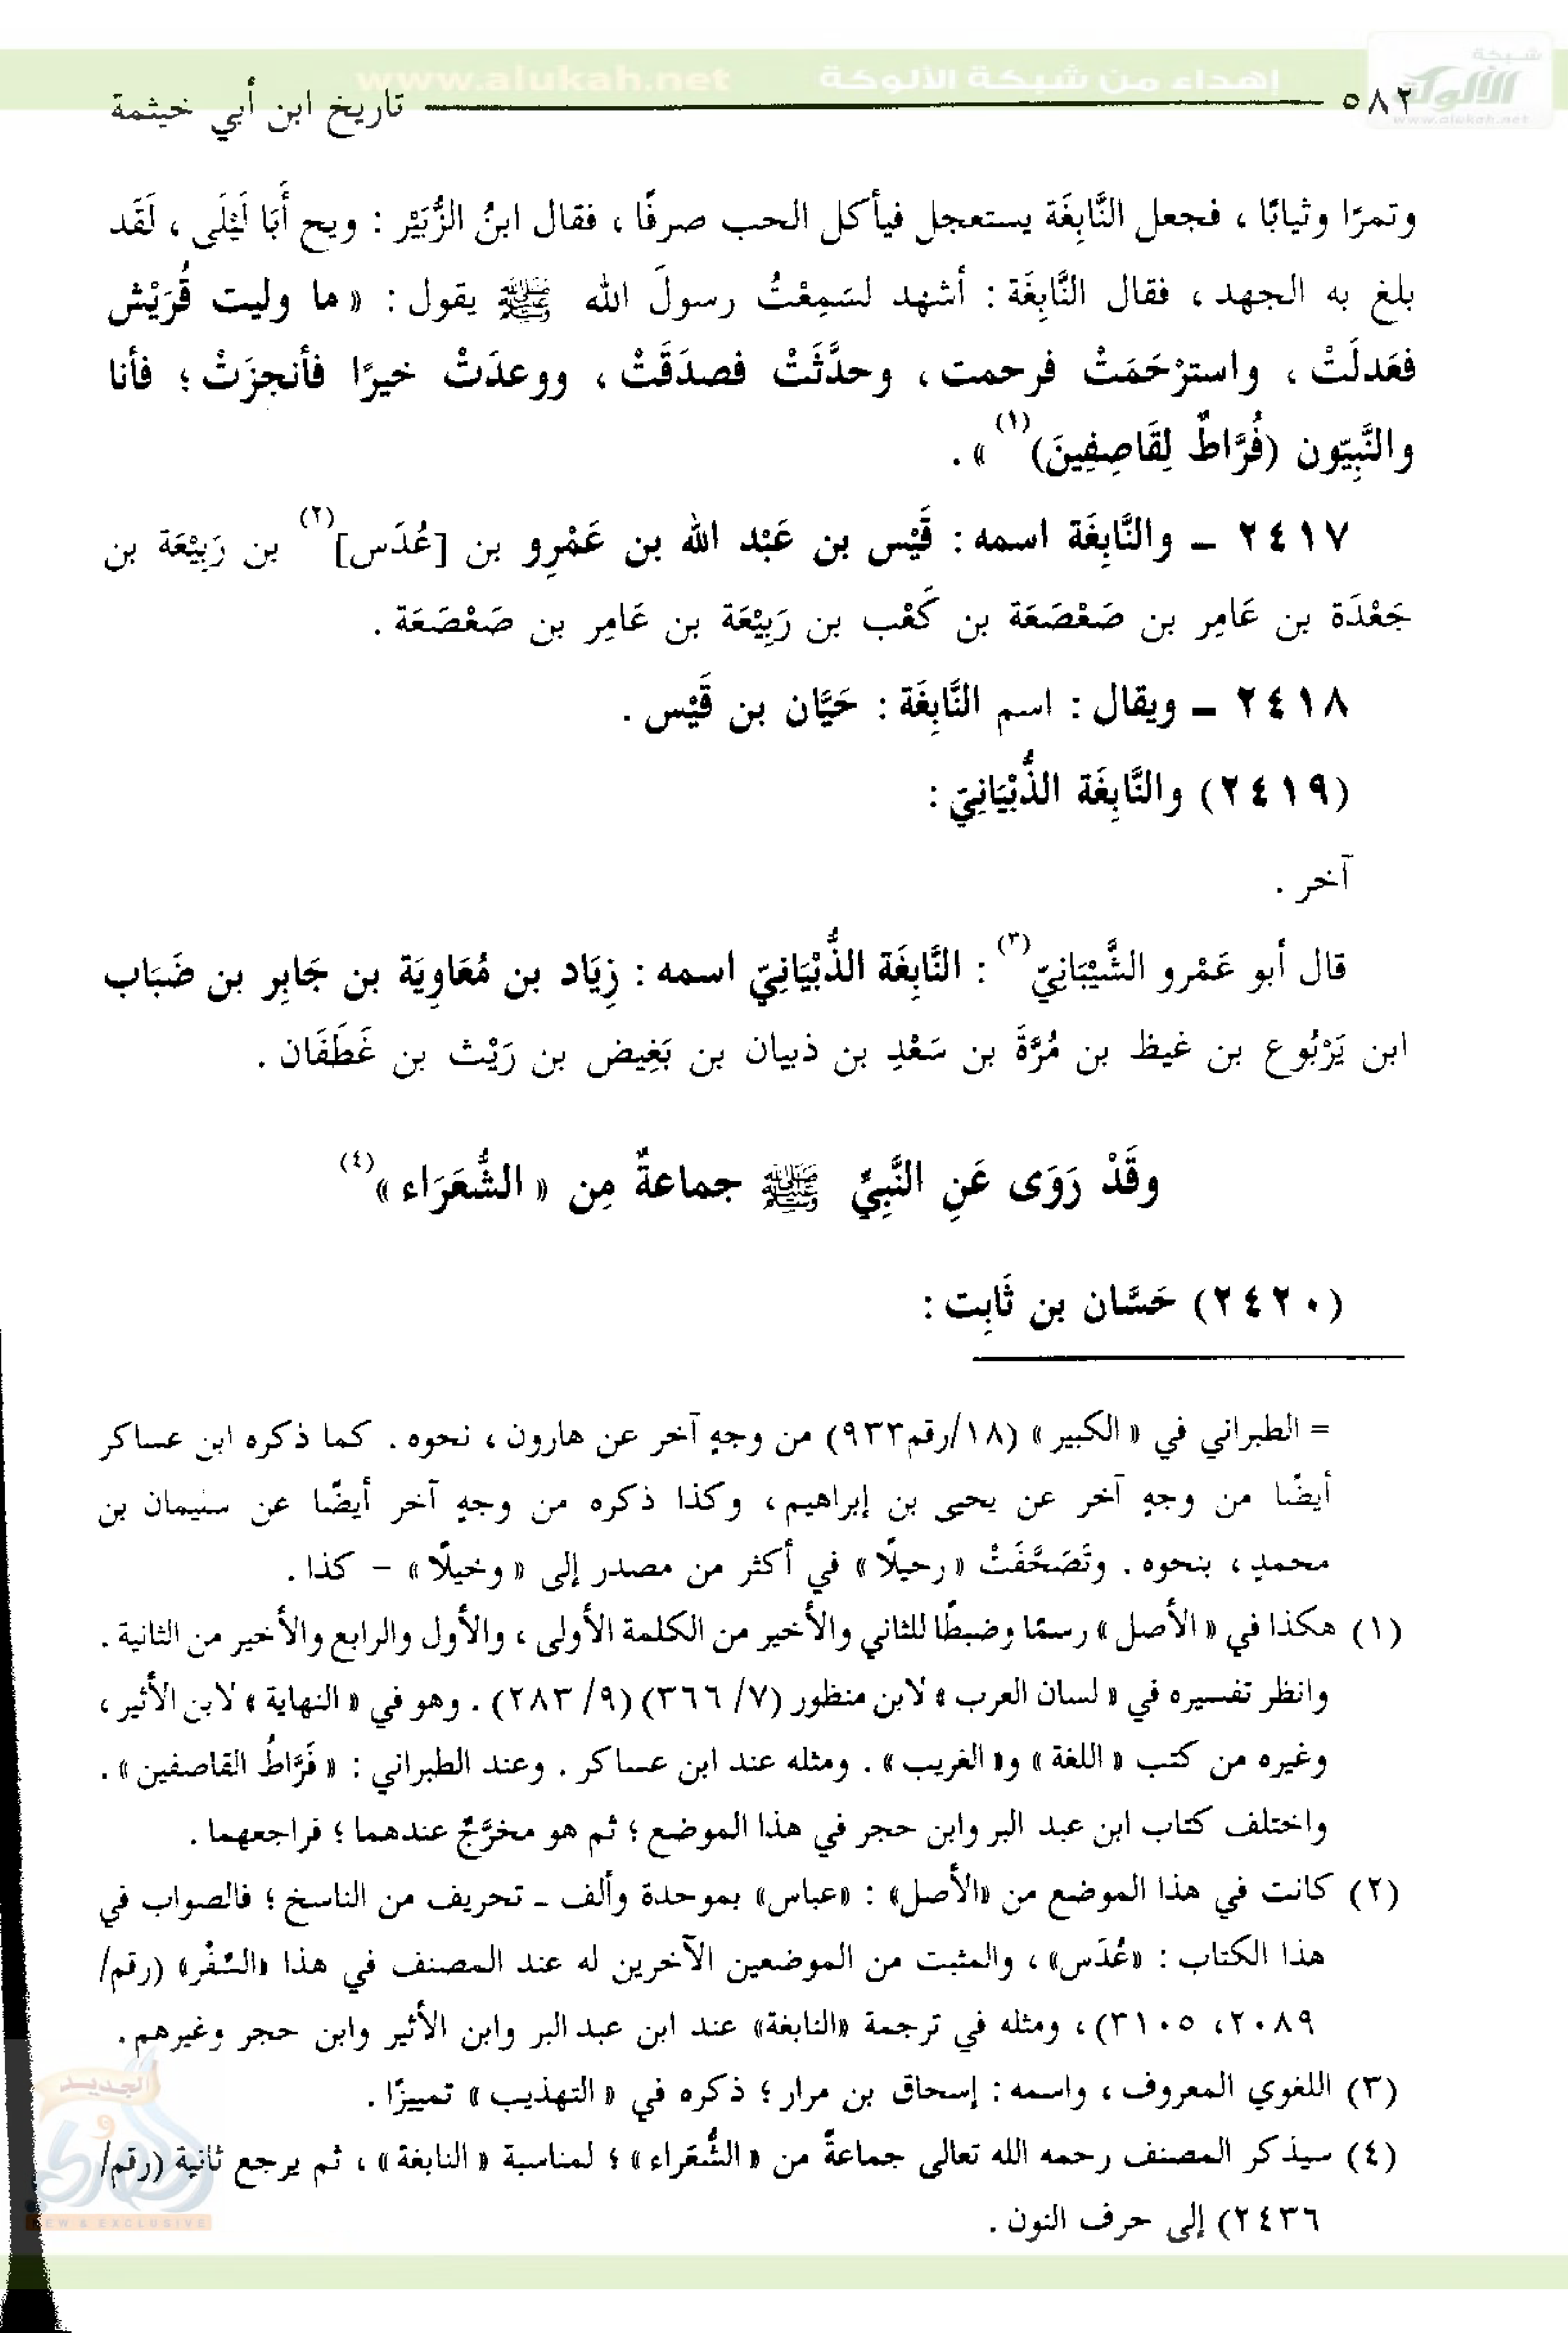 شبكة
الألوكة
www.alukah.net
إهداء من شبكة الألوكة www.alukah.net
٥٨٢ تاريخ ابن أبي خيثمة
وتمرًا وثيابًا ، فجعل النَّابِغَة يستعجل فيأكل الحب صرفًا ، فقال ابنُ الزُّبَيْر : ويح أَبَا لَيْلَى ، لَقَد
بلغ به الجهد ، فقال النَّابِغَة : أشهد لسَمِعْتُ رسولَ الله ﷺ يقول : « ما وليت قُرَيْش
فعَدلَتْ ، واسترْحَمَتْ فرحمت ، وحدَّثَتْ فصدَقَتْ ، ووعدَتْ خيرًا فأنجزَتْ ؛ فأنا
والنَّبِيّون (فُرَّاطٌ لِقَاصِفِينَ)(١) » .
٢٤١٧ – والنَّابِغَة اسمه : قَيْس بن عَبْد الله بن عَمْرِو بن [عُدَس](٢) بن رَبِيْعَة بن
جَعْدَة بن عَامِر بن صَعْصَعَة بن كَعْب بن رَبِيْعَة بن عَامِر بن صَعْصَعَة .
٢٤١٨ – ويقال : اسم النَّابِغَة : حَيَّان بن قَيْس .
(٢٤١٩) والنَّابِغَة الذُّبْيَانِيّ :
آخر .
قال أبو عَمْرو الشَّيْبَانِيّ(٣) : النَّابِغَة الذُّبْيَانِيّ اسمه : زِيَاد بن مُعَاوِيَة بن جَابِر بن ضَبَاب
ابن يَرْبُوع بن غيظ بن مُرَّةَ بن سَعْدِ بن ذبيان بن بَغِيض بن رَيْث بن غَطَفَان .
وقَدْ رَوَى عَنِ النَّبِيِّ ﷺ جماعةٌ مِن « الشُّعَرَاء »(٤)
(٢٤٢٠) حَسَّان بن ثَابِت :
= الطبراني في « الكبير » (١٨/رقم٩٣٣) من وجهٍ آخر عن هارون ، نحوه . كما ذكره ابن عساكر
أيضًا من وجهٍ آخر عن يحيى بن إبراهيم ، وكذا ذكره من وجهٍ آخر أيضًا عن سليمان بن
محمدٍ ، بنحوه . وتَصَحَّفَتْ « رحيلًا » في أكثر من مصدر إلى « وخيلًا » – كذا .
(١) هكذا في « الأصل » رسمًا وضبطًا للثاني والأخير من الكلمة الأولى ، والأول والرابع والأخير من الثانية .
وانظر تفسيره في « لسان العرب » لابن منظور (٧/ ٣٦٦) (٩/ ٢٨٣) . وهو في « النهاية » لابن الأثير ،
وغيره من كتب « اللغة » و« الغريب » . ومثله عند ابن عساكر . وعند الطبراني : « فَرَّاطُ القاصفين » .
واختلف كتاب ابن عبد البر وابن حجر في هذا الموضع ؛ ثم هو مخرَّجٌ عندهما ؛ فراجعهما .
(٢) كانت في هذا الموضع من «الأصل» : «عباس» بموحدة وألف ـ تحريف من الناسخ ؛ فالصواب في
هذا الكتاب : «عُدَس» ، والمثبت من الموضعين الآخرين له عند المصنف في هذا «السِّفْر» (رقم/
٢٠٨٩، ٣١٠٥) ، ومثله في ترجمة «النابغة» عند ابن عبد البر وابن الأثير وابن حجر وغيرهم .
(٣) اللغوي المعروف ، واسمه : إسحاق بن مرار ؛ ذكره في « التهذيب » تمييزًا .
(٤) سيذكر المصنف رحمه الله تعالى جماعةً من « الشُّعَراء » ؛ لمناسبة « النابغة » ، ثم يرجع ثانية (رقم/
٢٤٣٦) إلى حرف النون .
الجديد
و
NEW & EXCLUSIVE